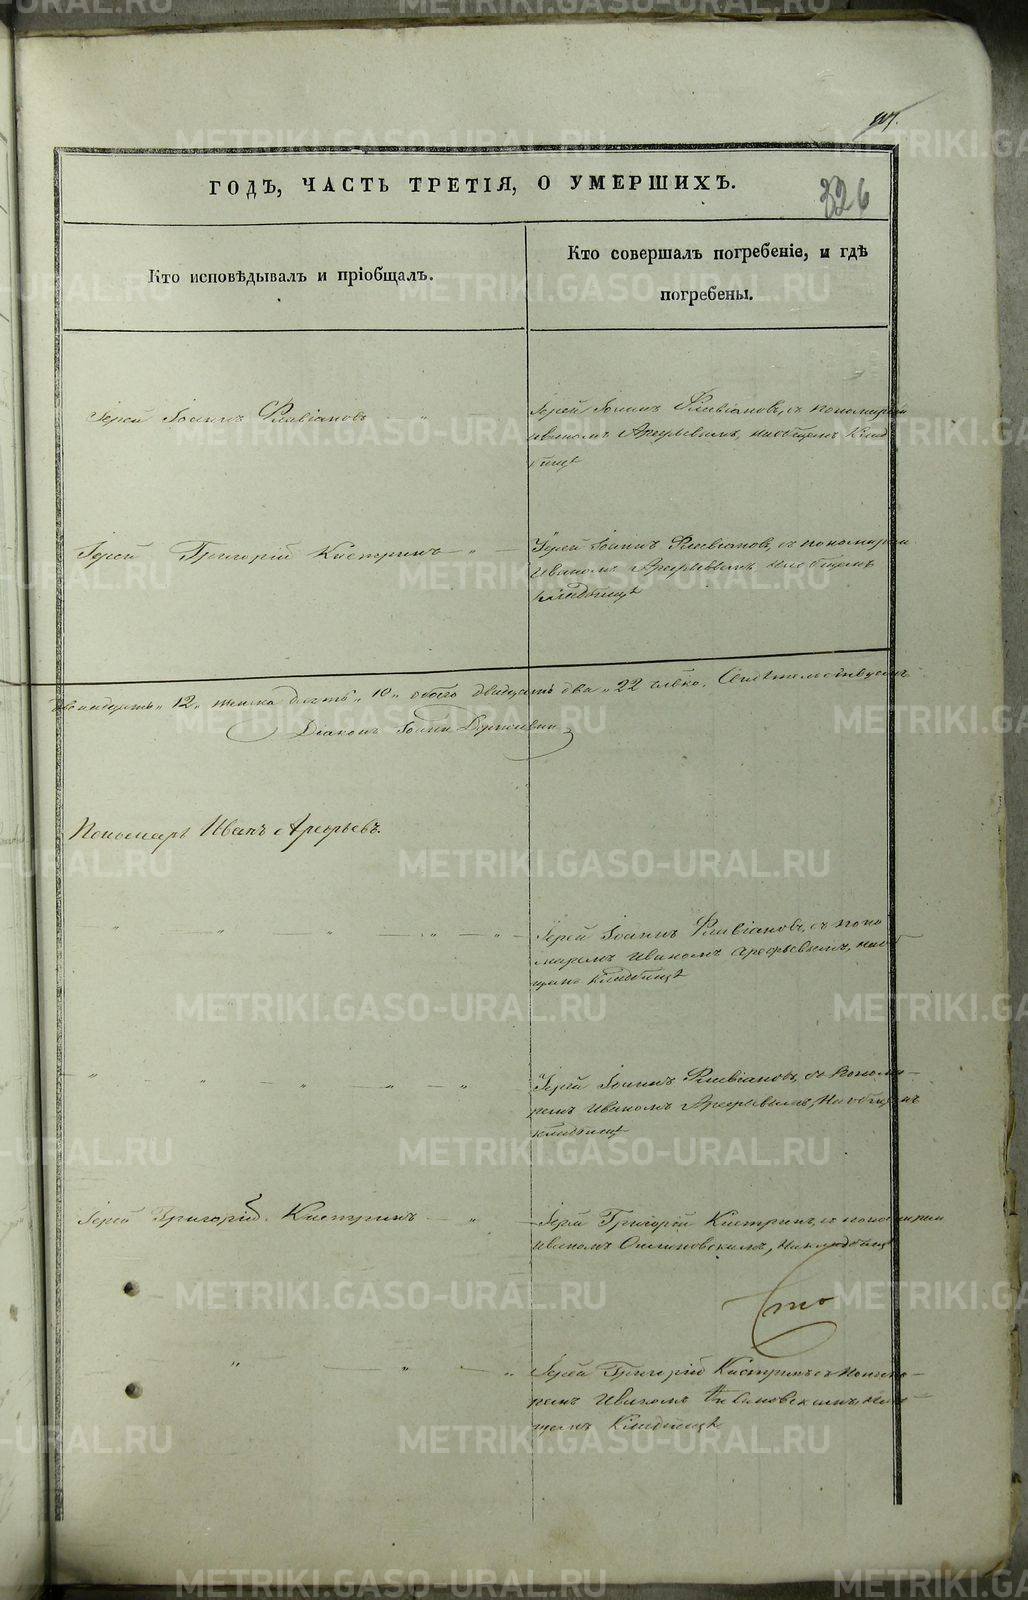 ГОДЪ, ЧАСТЬ ТРЕТІЯ, О УМЕРШИХЪ.
326
Кто исповѣдывалъ и пріобщалъ.
Кто совершалъ погребеніе, и гдѣ
погребены.
Іерей Іоаннъ Флавіановъ
Іерей Іоаннъ Флавіановъ, съ пономаремъ
Иваномъ Арефьевымъ, на общемъ клад
бищѣ
Іерей Григорій Кастринъ
Іерей Іоаннъ Флавіановъ, съ пономаремъ
Иваномъ Арефьевымъ на общемъ
кладбищѣ
двѣнадцать „12„ женска десять „10„ обоего двадцать два „22 человѣка. Свидѣтельствуемъ
Діаконъ Іоаннъ
Пономарь Иванъ Арефьевъ.
Іерей Іоаннъ Флавіановъ, съ поно
маремъ Иваномъ Арефьевымъ, на об
щемъ кладбищѣ
Іерей Іоаннъ Флавіановъ, съ понома-
ремъ Иваномъ Арефьевымъ, на общемъ
кладбищѣ
Іерей Григорій Кастринъ
Іерей Григорій Кастринъ, съ пономаремъ
Иваномъ, на кладбищѣ
Іерей Григорій Кастринъ съ понома-
ремъ Иваномъ, на об
щемъ кладбищѣ
METRIKI.GASO-URAL.RU